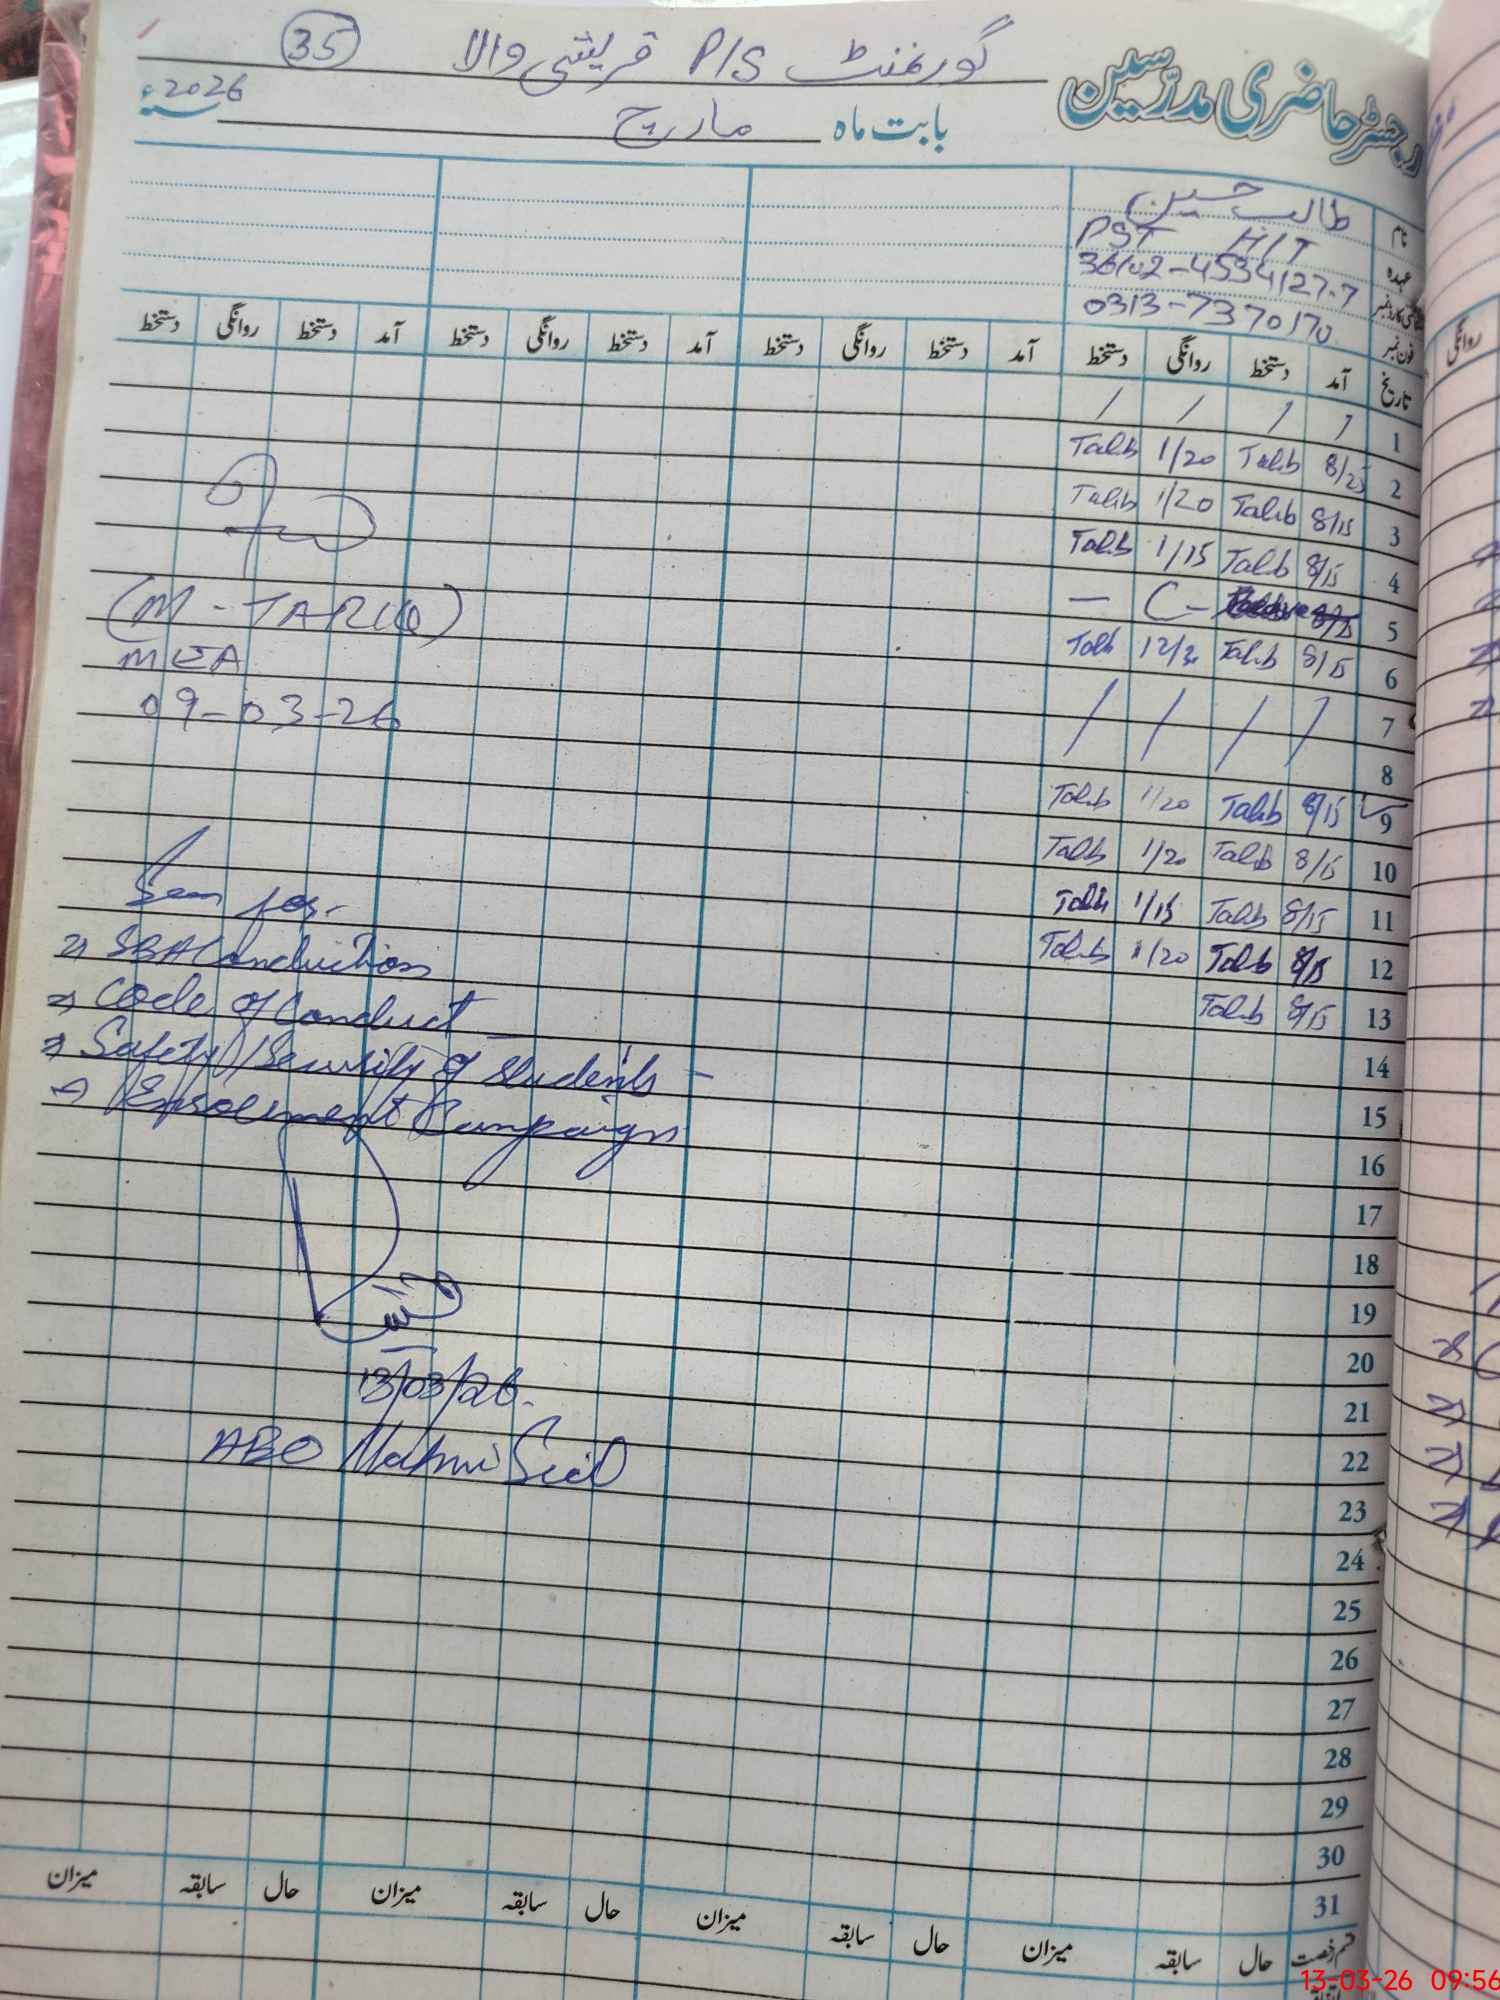 35
گورنمنٹ P/S قریشی والا
رجسٹر حاضری مدرسین
بابت ماہ مارچ
2026ء
نام طالب حسین
عہدہ PST H/T
36102-4534127-7
فون نمبر 0313-7370170
تاریخ آمد دستخط روانگی دستخط آمد دستخط روانگی دستخط آمد دستخط روانگی دستخط آمد دستخط روانگی دستخط
1 / / / /
2 8/25 Talib 1/20 Talib
3 8/15 Talib 1/20 Talib
4 8/15 Talib 1/15 Talib
5 8/15 C- —
6 8/15 Talib 12/30 Talib
7 / / / /
8
9 8/15 Talib 1/20 Talib
10 8/15 Talib 1/20 Talib
11 8/15 Talib 1/15 Talib
12 8/15 Talib 1/20 Talib
13 8/15 Talib
14
15
16
17
18
19
20
21
22
23
24
25
26
27
28
29
30
31
(M-TARIQ)
MEA
09-03-26
Seen for:-
⇒ SBA Conduction
⇒ Code of Conduct
⇒ Safety/Security of students -
⇒ Enrolement Campaign
13/03/26.
ABO Makhni Sial
قسم رخصت حال سابقہ میزان حال سابقہ میزان حال سابقہ میزان حال سابقہ میزان
روانگی
13-03-26 09:56